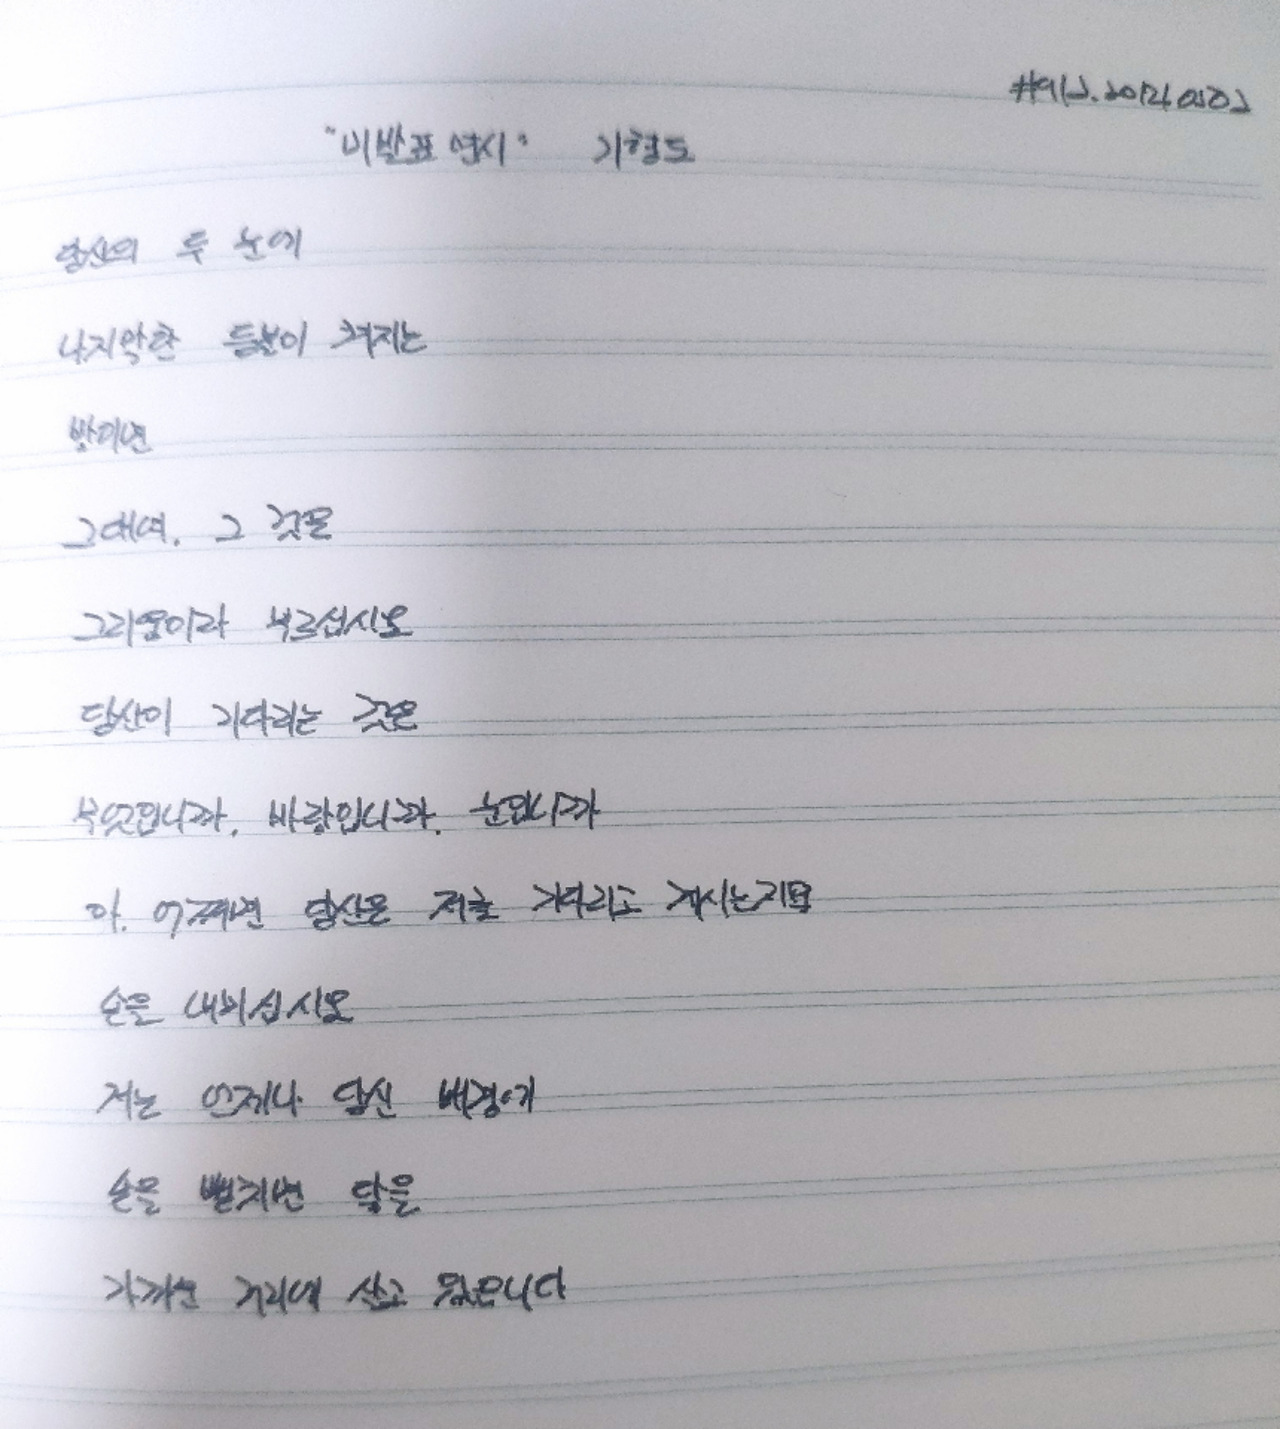 "미발표 연시" 기형도
당신의 두 눈에
나지막한 등불이 켜지는
밤이면
그대여, 그것을
그리움이라 부르십시오
당신이 기다리는 것은
무엇입니까, 바람입니까, 눈입니까
아, 어쩌면 당신은 저를 기다리고 계시는지요
손을 내미십시오
저는 언제나 당신 배경에
손을 뻗치면 닿을
가까운 거리에 살고 있습니다